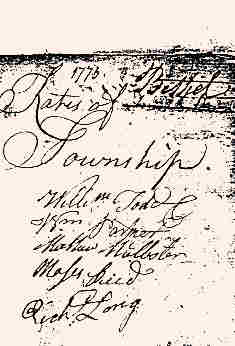 1773
Rates of Bethel
Township.
Willim Todd
Wm Parker
Mathew McAllister
Moses Reed
Rich Long